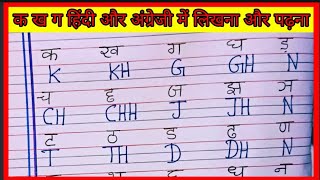 क ख ग हिंदी और अंग्रेजी में लिखना और पढ़ना
क ख ग घ ङ
K KH G GH N
च छ ज झ ञ
CH CHH J JH N
ट ठ ड ढ ण
T TH D DH N
त थ द ध न